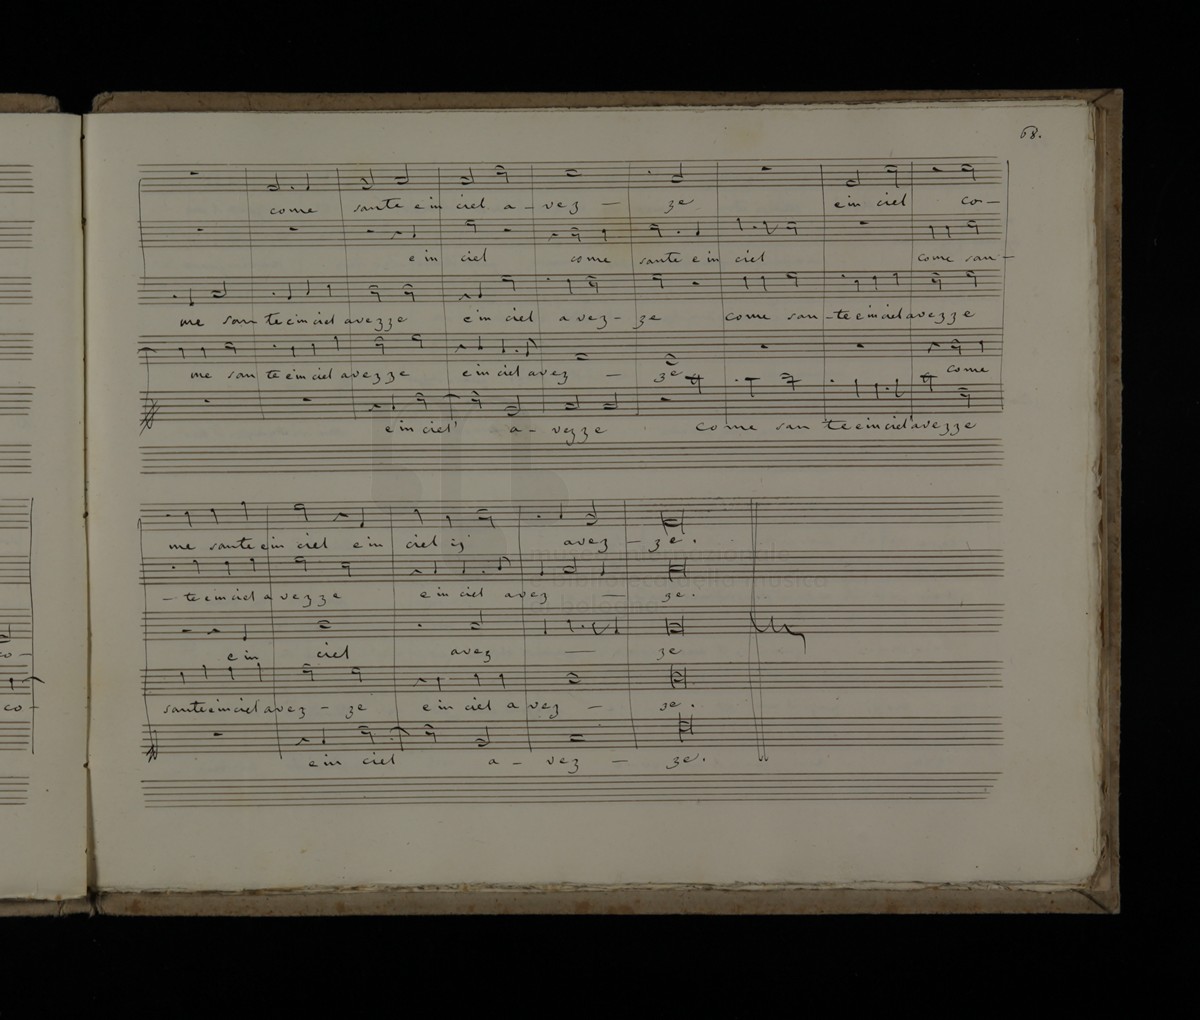 68.
come sante e in ciel a - vez — ze e in ciel co-
e in ciel come sante e in ciel come san-
me san te e in ciel avezze e in ciel avez - ze come san - te e in ciel avezze
me san te e in ciel avezze e in ciel avez — ze come
e in ciel a - vezze Come san te e in ciel avezze
me sante e in ciel e in ciel ij avez - ze.
- te e in ciel avezze e in ciel avez — ze.
co - e in ciel avez — ze
co - sante e in ciel avez - ze e in ciel avez — ze.
e in ciel a - vez — ze.
museo internazionale
e biblioteca della musica
di Bologna